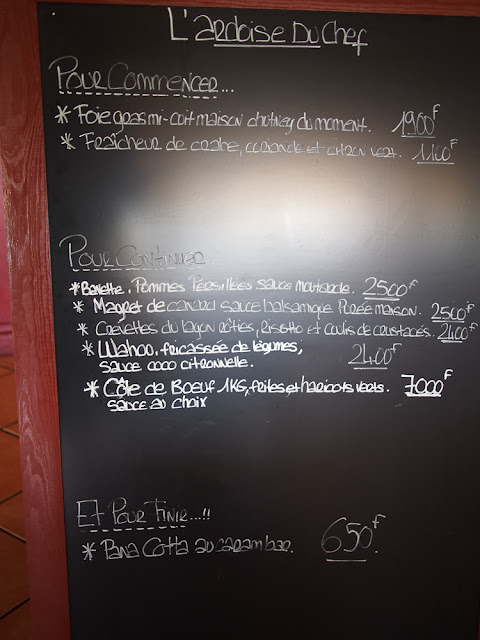 L'ardoise Du Chef
Pour Commencer...
* Foie gras mi-cuit maison chutney du moment. 1900F
* Fraîcheur de crabe, coriande et citron vert. 1100F
Pour Continuer...
* Bavette, Pommes Persillées sauce moutarde. 2500F
* Magret de canard sauce balsamique Purée maison. 2500F
* Crevettes du lagon rôties, Risotto et coulis de crustacés. 2400F
* Wahoo, fricassée de légumes, 2400F
sauce coco citronnelle.
* Côte de Boeuf 1KG, frites, et haricots verts. 7000F
sauce au choix
Et Pour Finir...!!
* Pana Cotta au carambar. 650F